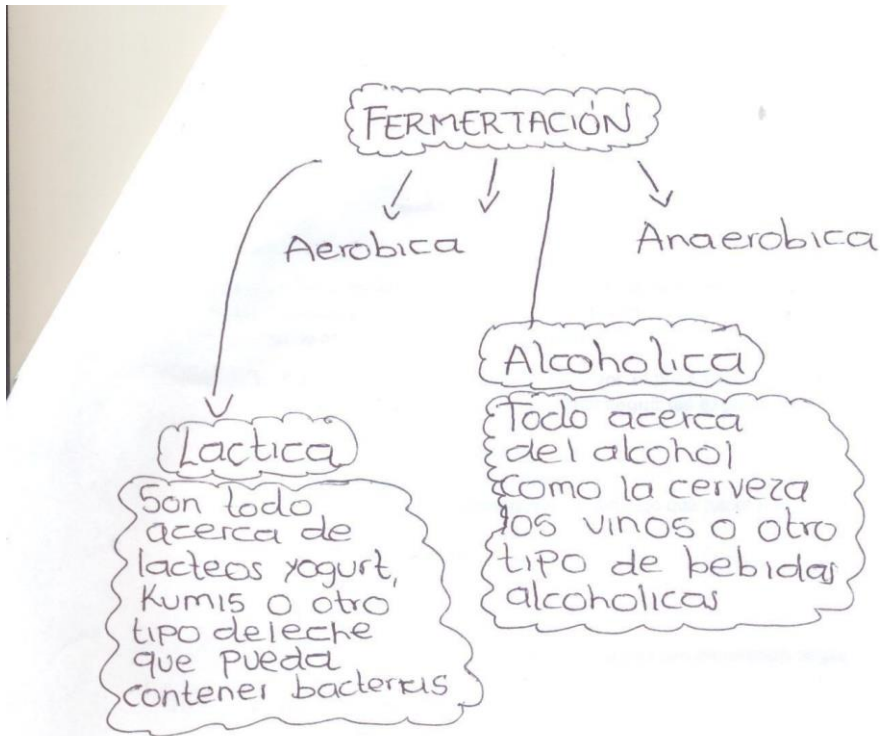 FERMERTACIÓN
Aerobica
Anaerobica
Alcoholica
Todo acerca
del alcohol
como la cerveza
los vinos o otro
tipo de bebidas
alcoholicas
Lactica
Son todo
acerca de
lacteos yogurt,
Kumis o otro
tipo de leche
que pueda
contener bacterias